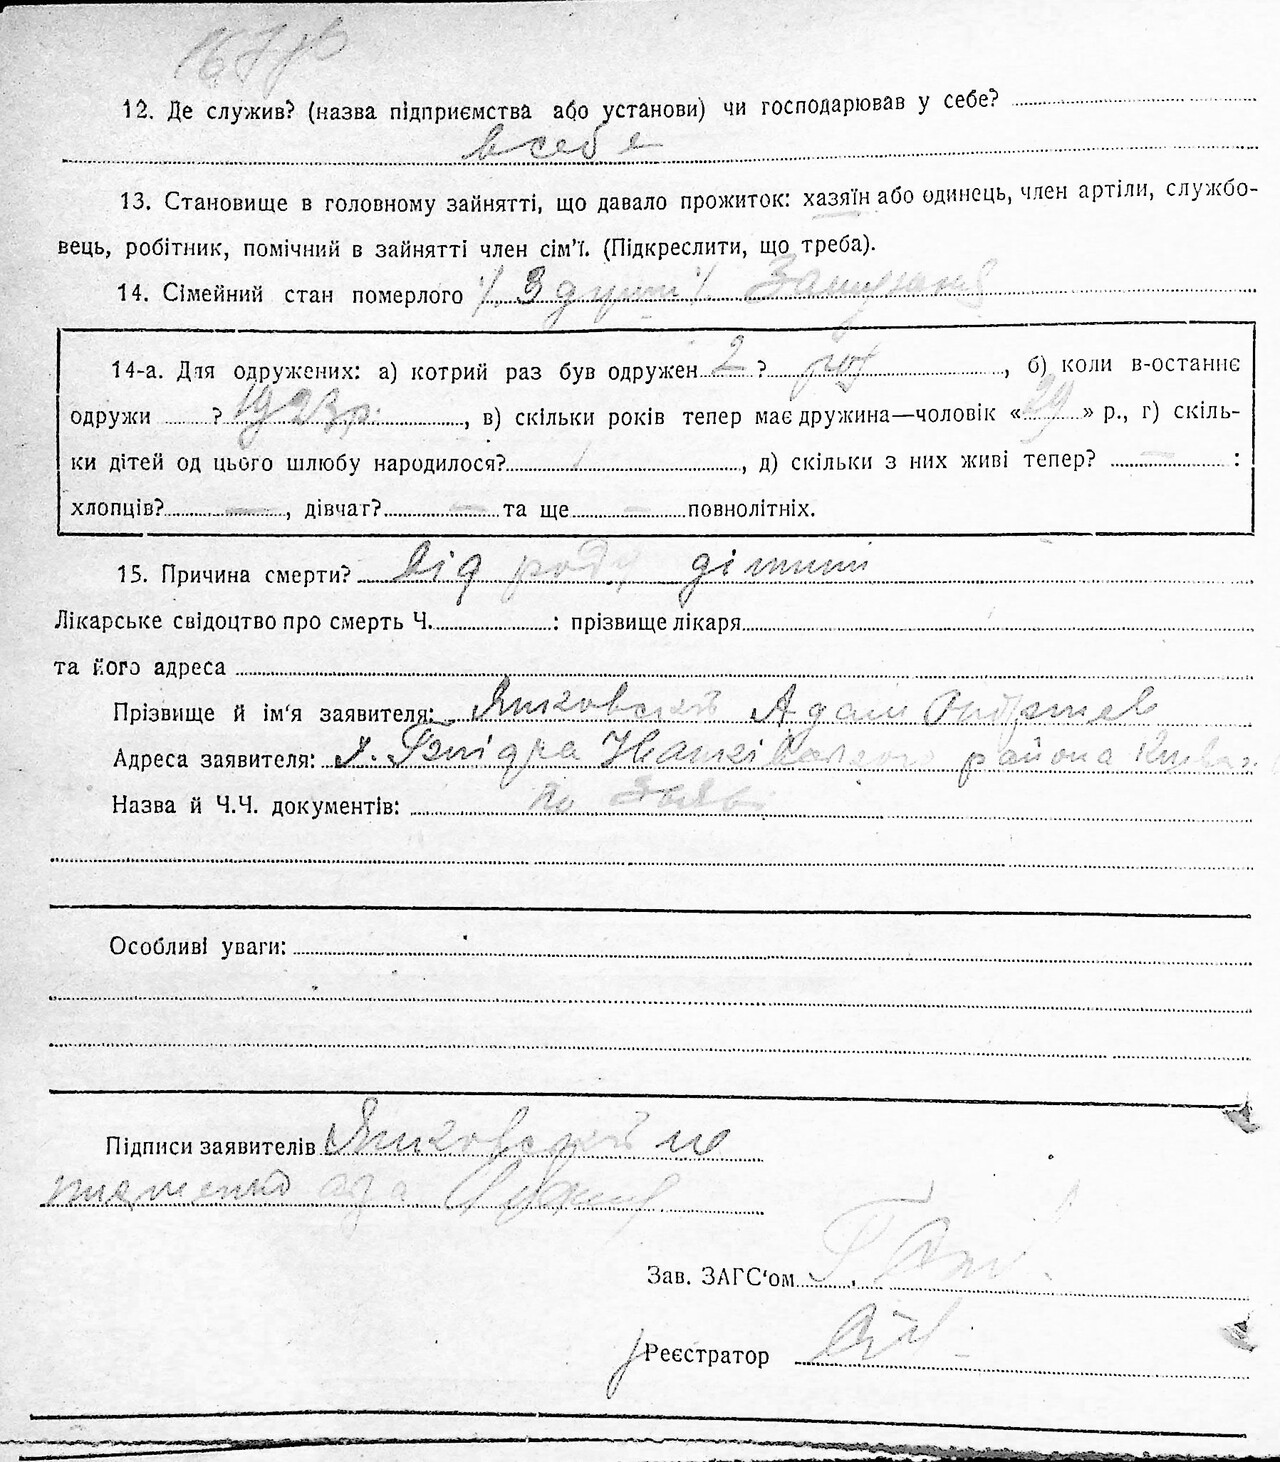 12. Де служив? (назва підприємства або установи) чи господарював у себе?
в себе
13. Становище в головному зайнятті, що давало прожиток: хазяїн або одинець, член артіли, службо-
вець, робітник, помічний в зайнятті член сім'ї. (Підкреслити, що треба).
14. Сімейний стан померлого 3 душі Замужня
14-а. Для одружених: а) котрий раз був одружен 2 ? раз, б) коли в-останнє
одружи ? 1923 р., в) скільки років тепер має дружина—чоловік «29» р., г) скіль-
ки дітей од цього шлюбу народилося?, д) скільки з них живі тепер? — :
хлопців? —, дівчат? — та ще — повнолітніх.
15. Причина смерти? від роду дітини
Лікарське свідоцтво про смерть Ч. : прізвище лікаря
та його адреса
Прізвище й ім'я заявителя: Адам
Адреса заявителя: района
Назва й Ч.Ч. документів: по заяві
Особливі уваги:
Підписи заявителів
Зав. ЗАГС'ом
Реєстратор